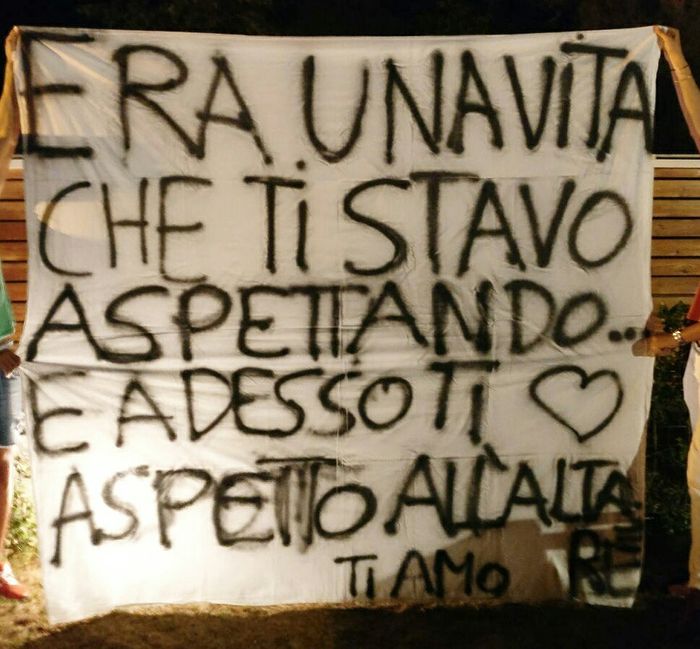 ERA UNA VITA
CHE TI STAVO
ASPETTANDO...
E ADESSO TI ♡
ASPETTO ALL'ALTA
RE
TI AMO